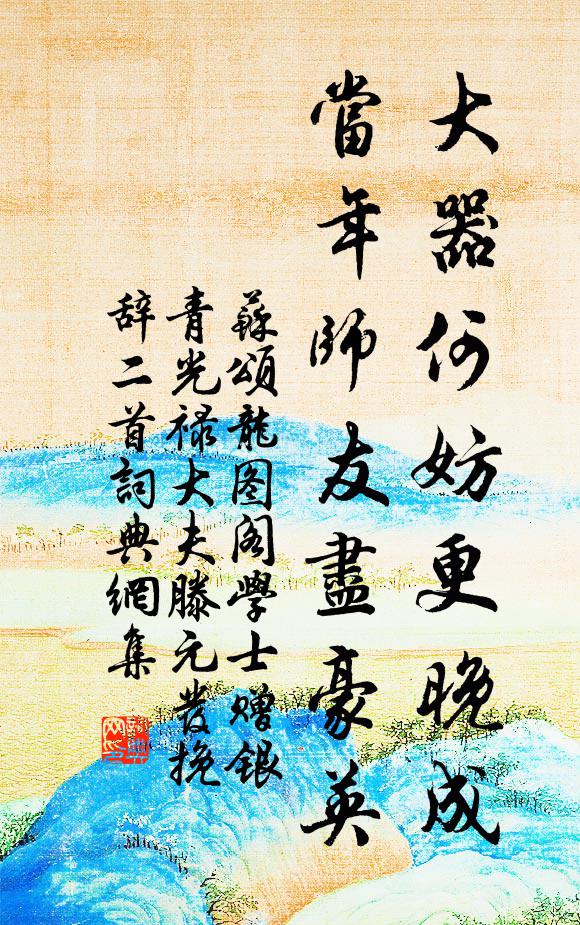 大器何妨更晚成
當年師友盡豪英
蘇頌龍图阁學士赠銀
青光禄大夫滕元發挽
辞二首詞典網集